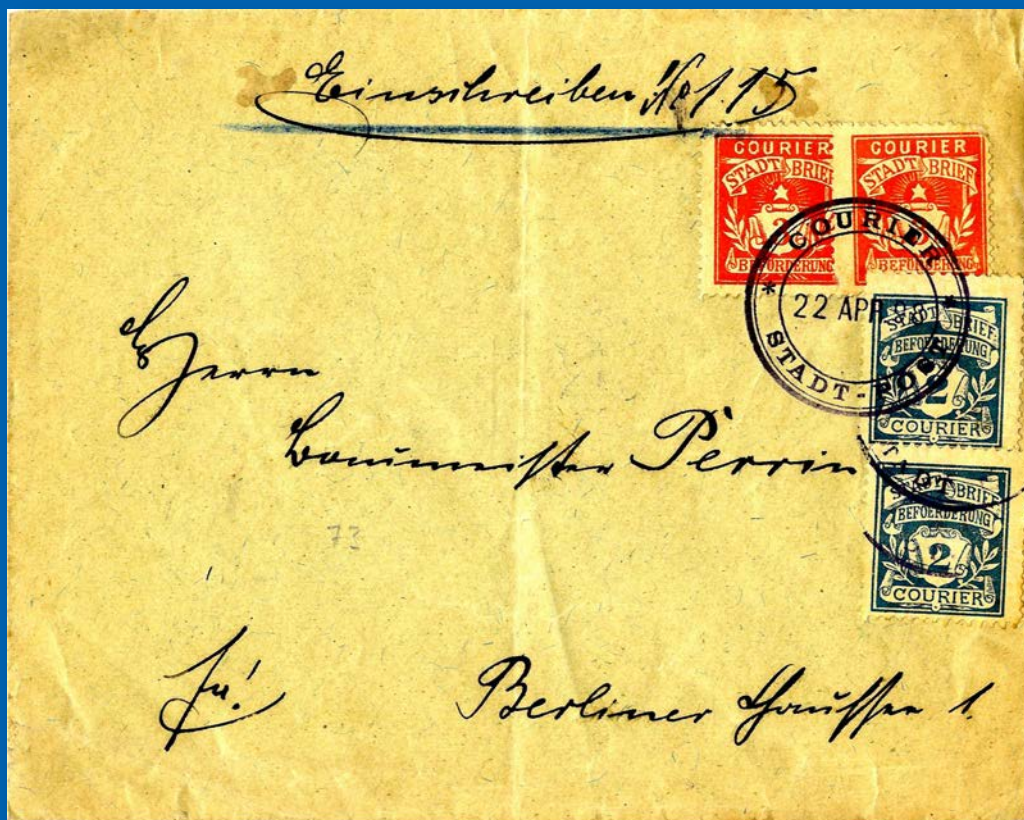 Einschreiben No 1.15
COURIER
STADT BRIEF
BEFÖRDERUNG
COURIER
STADT BRIEF
BEFÖRDERUNG
COURIER
22 APR
STADT-POST
STADT BRIEF
BEFOERDERUNG
2
COURIER
STADT BRIEF
BEFOERDERUNG
2
COURIER
Herrn
Baumeister Perrin
73
Berliner Chaussee 1.